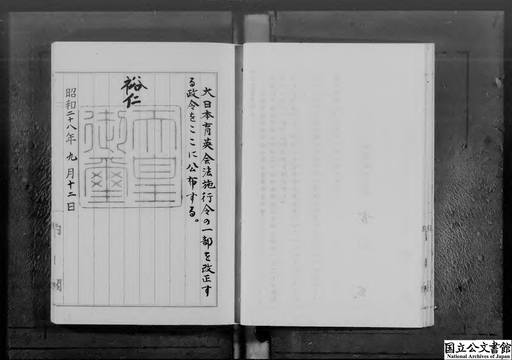 大日本育英会法施行令の一部を改正す
る政令をここに公布する。
裕仁
天皇
御璽
昭和二十八年九月十二日
国立公文書館
National Archives of Japan